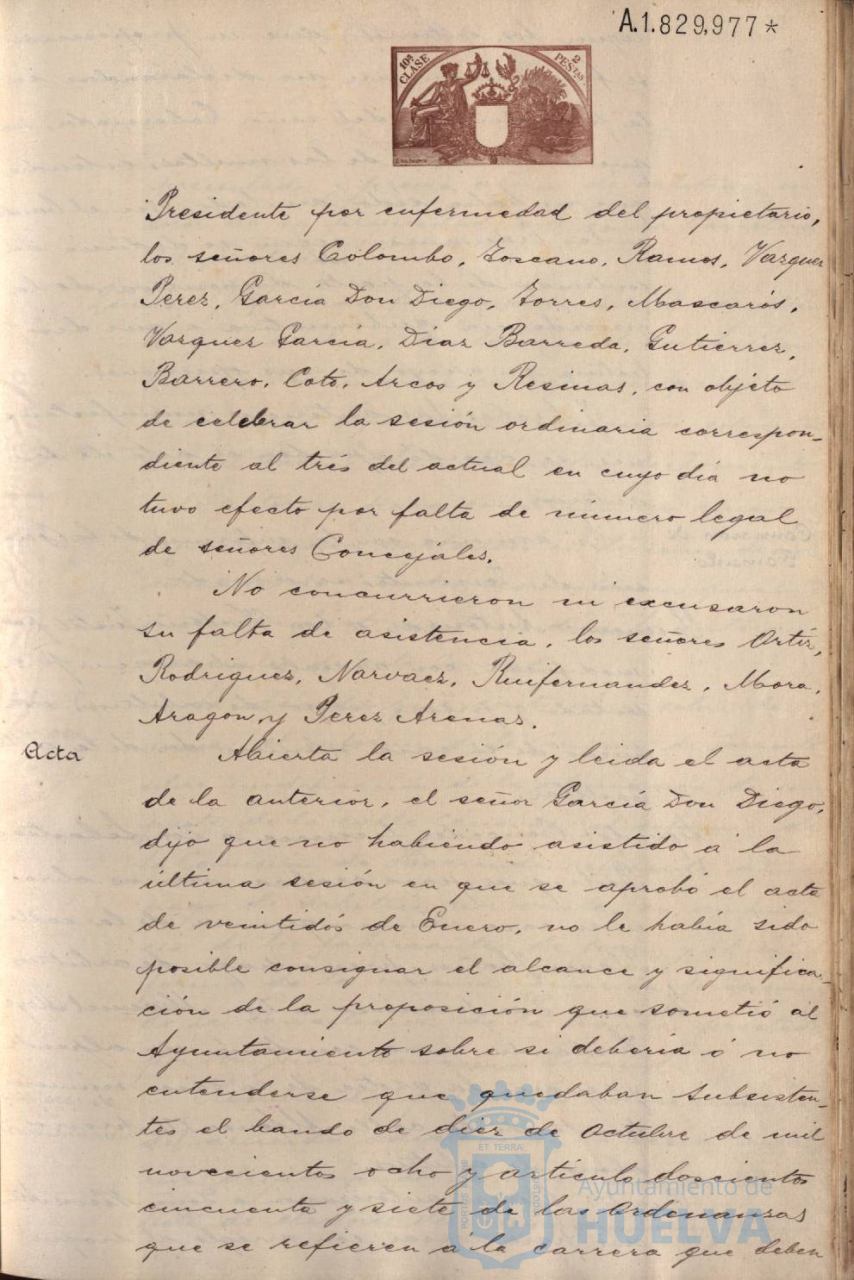 A.1.829,977*
10ª CLASE
2 PESTAS
Presidente por enfermedad del propietario,
los señores Colombo, Toscano, Ramos, Vazquez
Perez, García Don Diego, Torres, Mascarós,
Vazquez García, Diaz Barreda, Gutierrez,
Barrero, Coto, Arcos y Resinas, con objeto
de celebrar la sesión ordinaria correspon-
diente al trés del actual en cuyo día no
tuvo efecto por falta de número legal
de señores Concejales.
No concurrieron ni excusaron
su falta de asistencia, los señores Ortiz,
Rodriguez, Narvaez, Ruifernandez, Mora,
Aragon, y Perez Arenas.
Acta
Abierta la sesión y leida el acta
de la anterior, el señor García Don Diego,
dijo que no habiendo asistido á la
última sesión en que se aprobó el acta
de veintidós de Enero, no le había sido
posible consignar el alcance y significa-
ción de la proposición que sometió al
Ayuntamiento sobre si debería ó no
entenderse que quedaban subsisten-
tes el bando de diez de Octubre de mil
novecientos ocho y artículo doscientos
cincuenta y siete de las Ordenanzas
que se refieren á la carrera que deben
ET TERRA
Ayuntamiento de
HUELVA